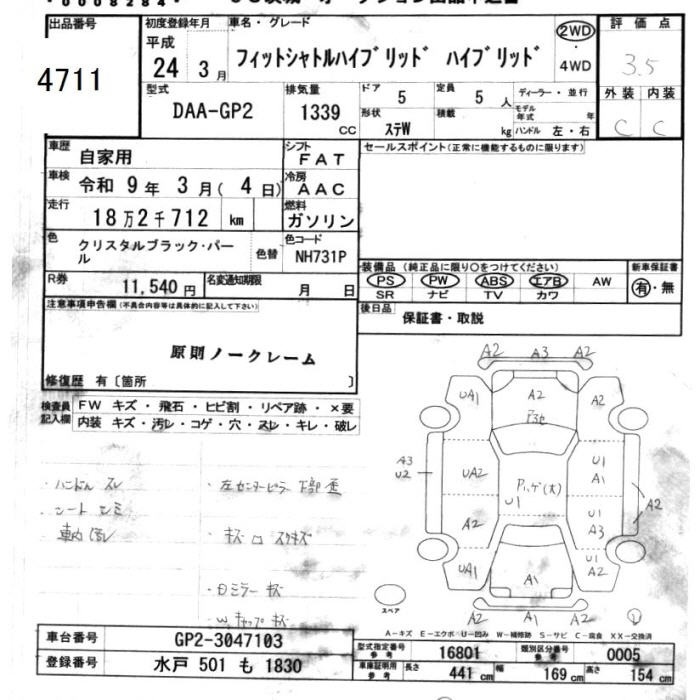 0008284
出品番号
4711
初度登録年月
平成
24 3 月
車名・グレード
フィットシャトルハイブリッド ハイブリッド
2WD
・
4WD
評価点
3.5
外装 内装
C C
型式
DAA-GP2
排気量
1339
CC
ドア
5
定員
5 人
ディーラー・並行
モデル年式 年
形状
ステW
積載
kg
ハンドル 左・右
車歴
自家用
シフト
FAT
セールスポイント(正常に機能するものに限ります)
車検
令和 9 年 3 月( 4 日)
冷房
AAC
走行
18万2千712 km
燃料
ガソリン
色
クリスタルブラック・パール
色替
色コード
NH731P
装備品 (純正品に限り○をつけてください)
新車保証書
PS PW ABS エアB AW
SR ナビ TV カワ
有・無
R券
11,540 円
名変通知期限
月 日
後日品
保証書・取説
注意事項申告欄(不具合内容等は具体的に記入して下さい)
原則ノークレーム
修復歴 有〔箇所 〕
検査員記入欄
FW キズ・飛石・ヒビ割・リペア跡・×要
内装 キズ・汚レ・コゲ・穴・スレ・キレ・破レ
・ハンドル スレ
・シート シミ
・車内 汚レ
・左センターピラー下部 歪
・キズ
・Dミラー キズ
・W.キャップ キズ
A2 A3 A2
UA1 A2 A2
A3
U2
UA2
U1
A1
A2
U1
A2
U1
A3
UA1
U1
A2
A1
スペア
A-キズ E-エクボ U-凹み W-補修跡 S-サビ C-腐食 XX-交換済
車台番号
GP2-3047103
登録番号
水戸 501 も 1830
型式指定番号
参考
16801
類別区分番号
参考
0005
車庫証明用
参考
長さ
441 cm
幅
169 cm
高さ
154 cm